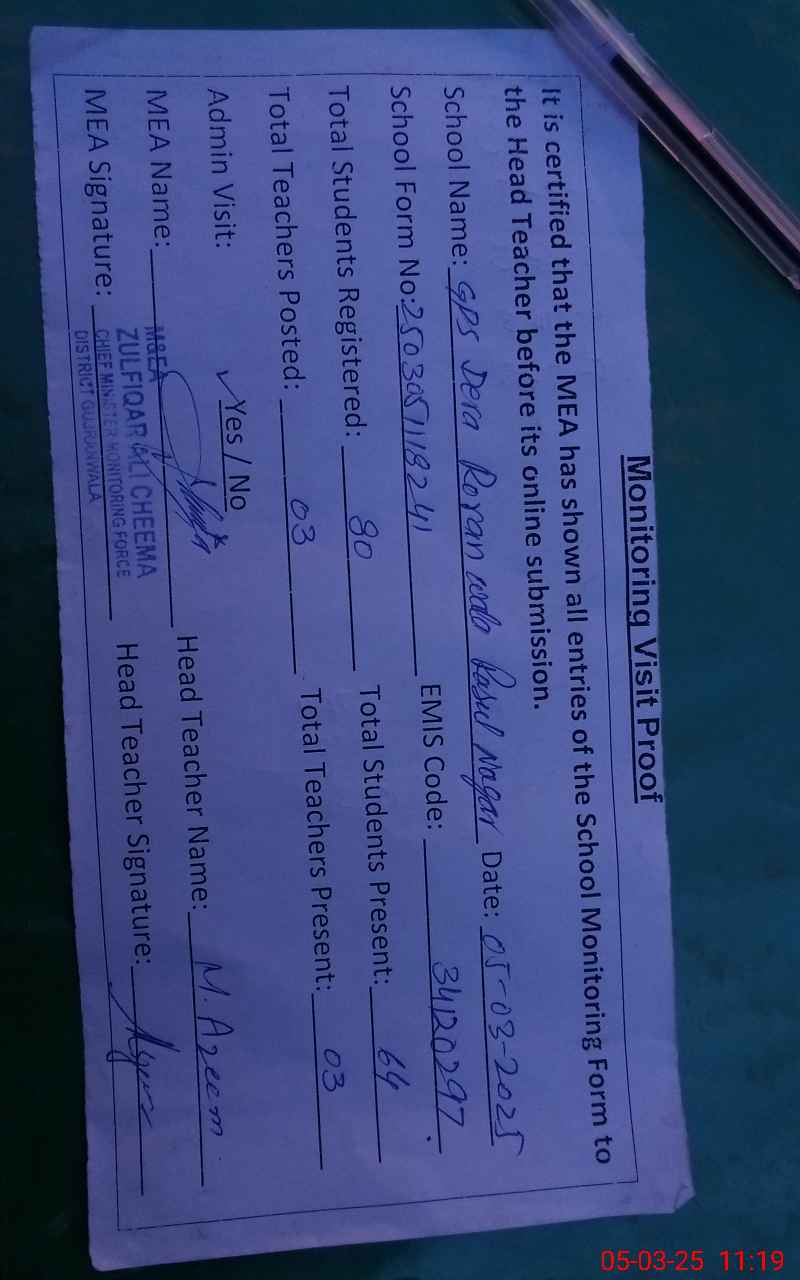 Monitoring Visit Proof
It is certified that the MEA has shown all entries of the School Monitoring Form to
the Head Teacher before its online submission.
School Name: GPS Dera Roran wala Rasul Nagar Date: 05-03-2025
School Form No: 2503051118241 EMIS Code: 34120297
Total Students Registered: 80 Total Students Present: 64
Total Teachers Posted: 03 Total Teachers Present: 03
Admin Visit: ✓Yes / No
MEA Name: Head Teacher Name: M. Azeem
MEA Signature: Head Teacher Signature:
M&EA
ZULFIQAR ALI CHEEMA
CHIEF MINISTER MONITORING FORCE
DISTRICT GUJRANWALA
05-03-25 11:19